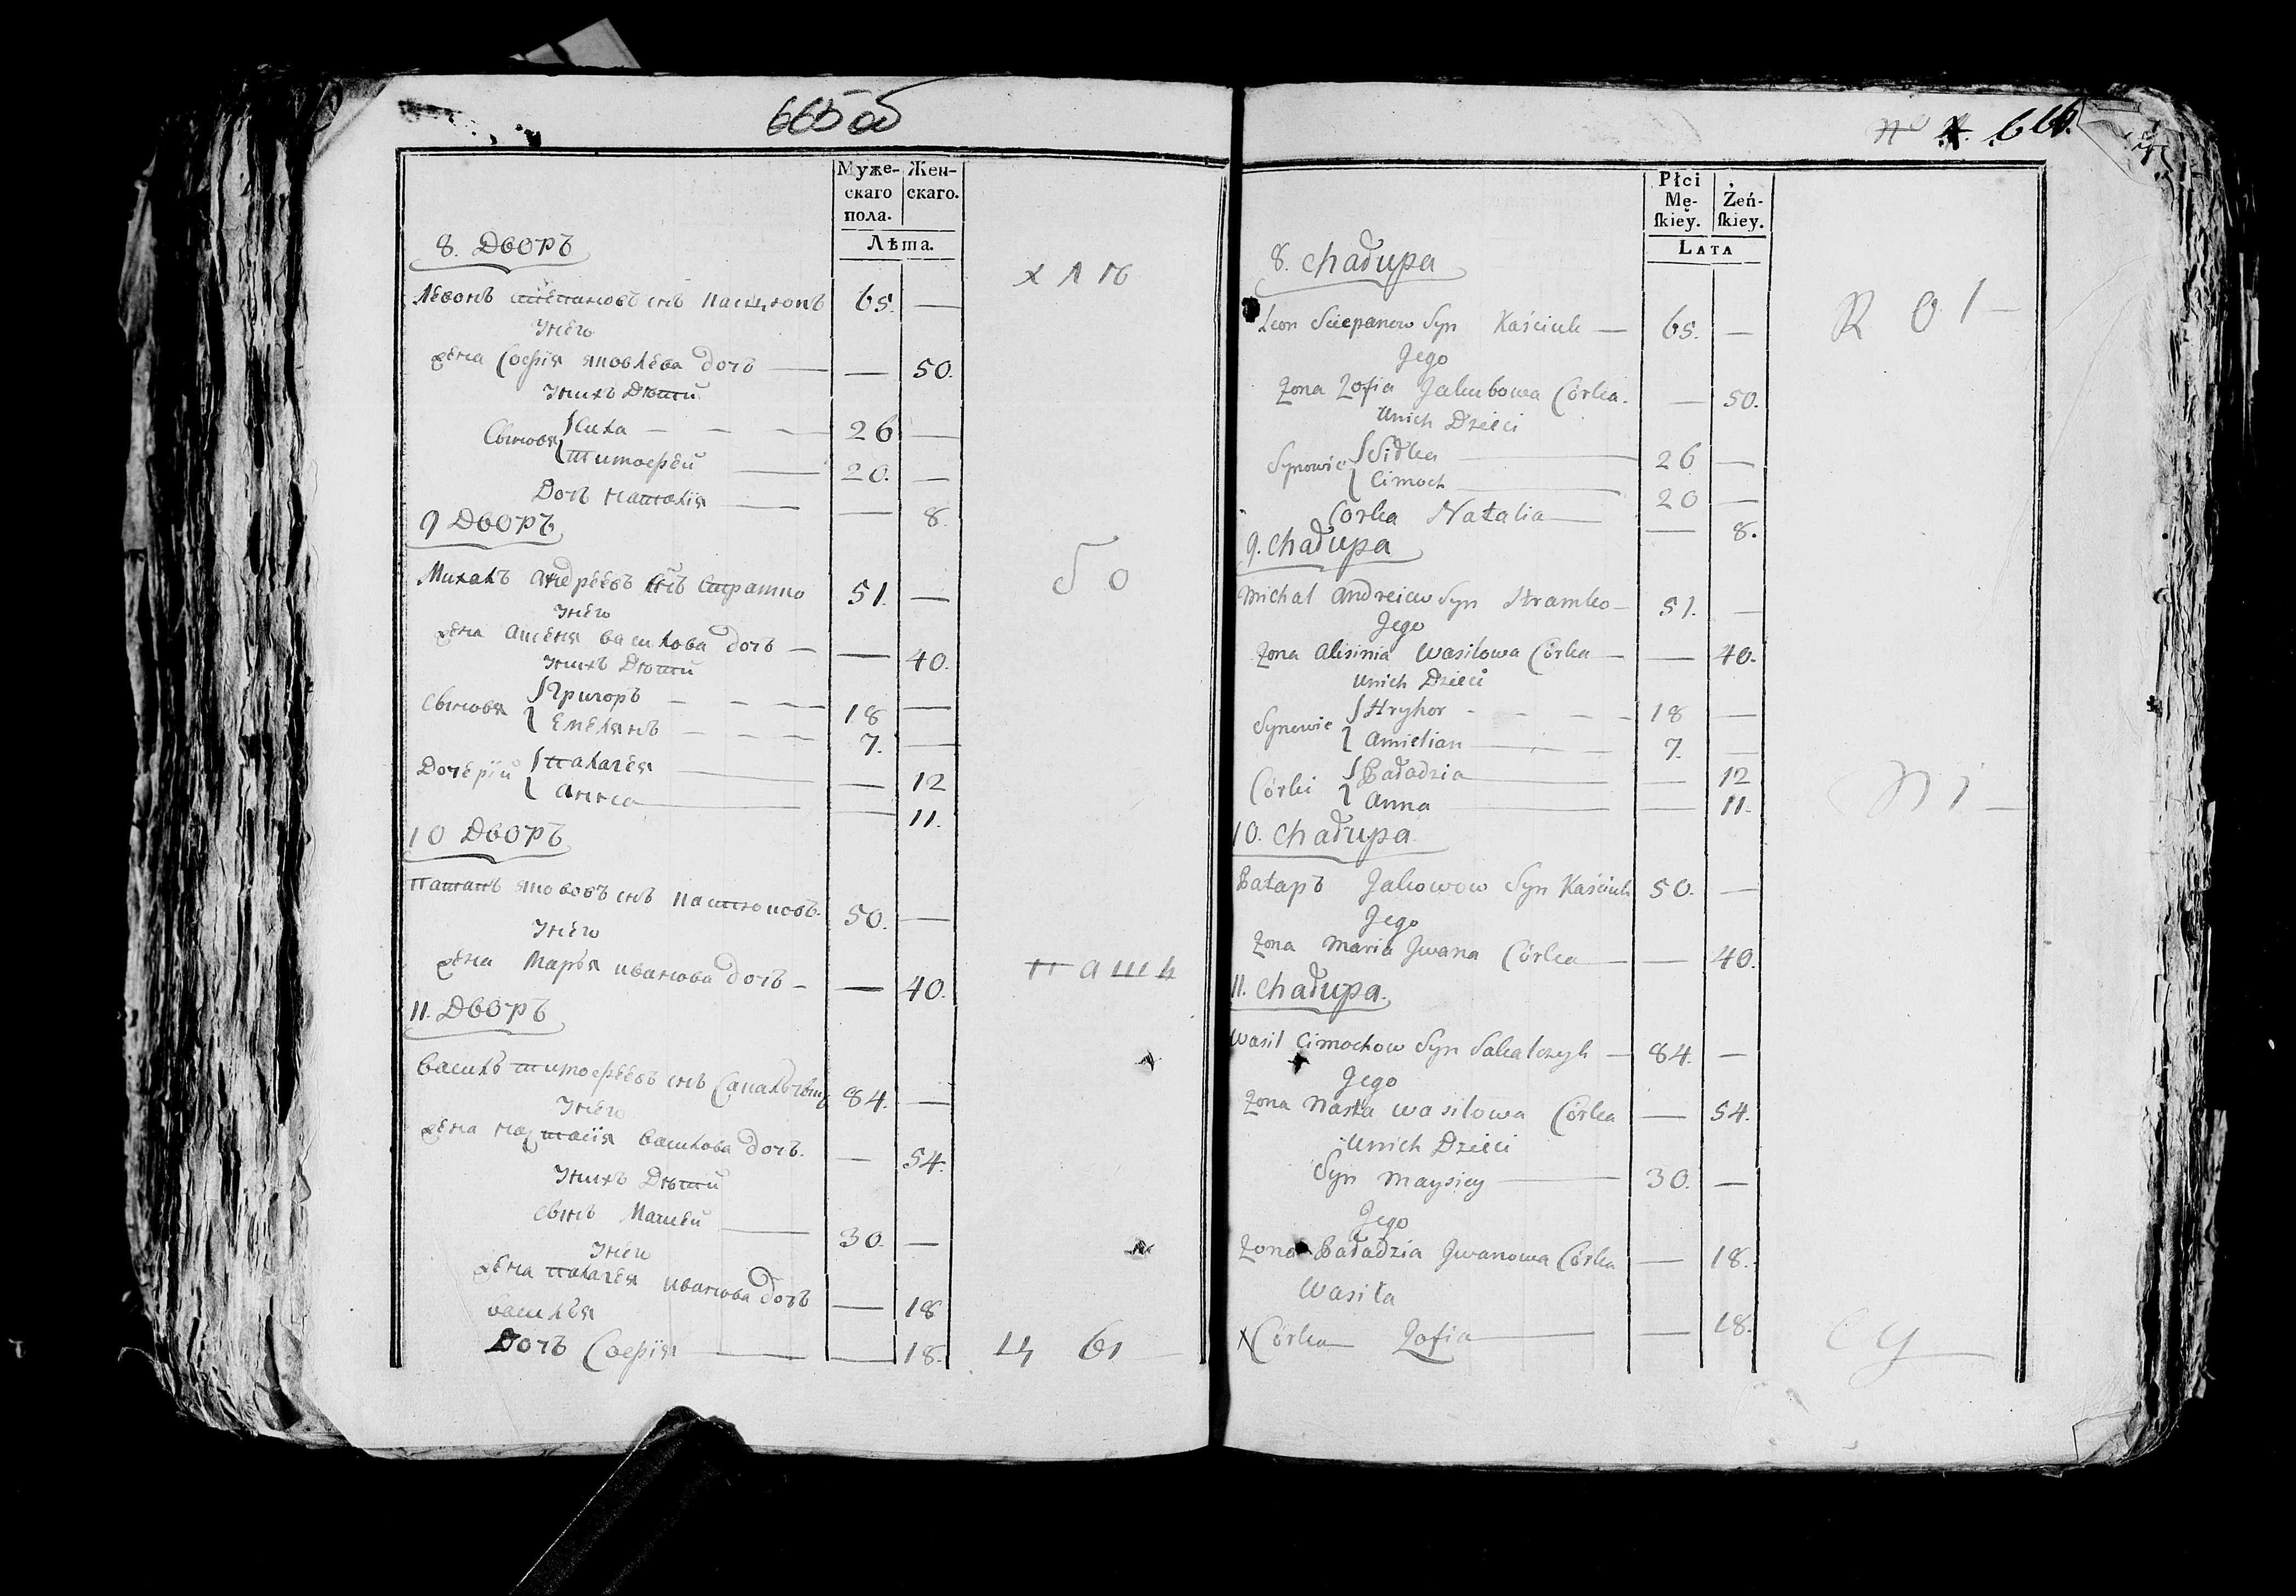 665 об
Муже-
скаго
пола.
Жен-
скаго.
Лѣта.
8. Дворъ
Левонъ Степановъ снъ 65. —
У него
жена Софія Яковлева дочь — — 50.
У нихъ Дѣти
Сынові Сила — — — 26 —
Тимофей — 20. —
Дочь Наталія — — 8.
9 Дворъ
Михалъ Андреевъ снъ Страпко 51. —
У него
жена Василова дочь — — 40.
У нихъ Дѣти
Сынові Григоръ — — — 18 —
Емелянъ — — — 7. —
Дочерій Палагея — — 12
Анна — — 11.
10 Дворъ
Якововъ снъ 50. —
У него
жена Марья Иванова дочь — — 40.
11. Дворъ
Василь Тимофеевъ снъ 84. —
У него
жена Настасія Василова дочь. — 54.
У нихъ Дѣти
Сынъ — 30. —
У него
жена Палагея Иванова дочь — 18
Василья
Дочь Софія — — 18.
N 666.
Płci
Mę-
ſkiey.
Żeń-
ſkiey.
LATA
8. Chałupa
Leon Sciepanow Syn Kaściuk — 65. —
Jego
Zona Zofia Jakubowa Córka. — 50.
Unich Dzieci
Synowie Sidka — 26 —
Cimoch — 20 —
Córka Natalia — — 8.
9. Chałupa
Michał Andreiew Syn Stramko — 51. —
Jego
Zona Alisinia Wasilowa Córka — — 40.
Unich Dzieci
Synowie Hryhor - - - - 18 —
Amielian — — — 7. —
Córki Paładzia — — 12
Anna — — 11.
10. Chałupa
Jakowow Syn Kaściuk 50. —
Jego
Zona Maria Jwana Córka — — 40.
11. Chałupa.
Wasil Cimochow Syn Sakalczyk — 84. —
Jego
Zona Nasta Wasilowa Córka — 54.
Unich Dzieci
Syn Maysiey — 30. —
Jego
Zona Paładzia Jwanowa Córka — 18.
Wasila
Córka Zofia — — 18.